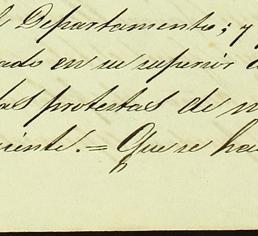 l Departamento; y
ado en su superior d
las protestas de m
ciente. = Que se ha